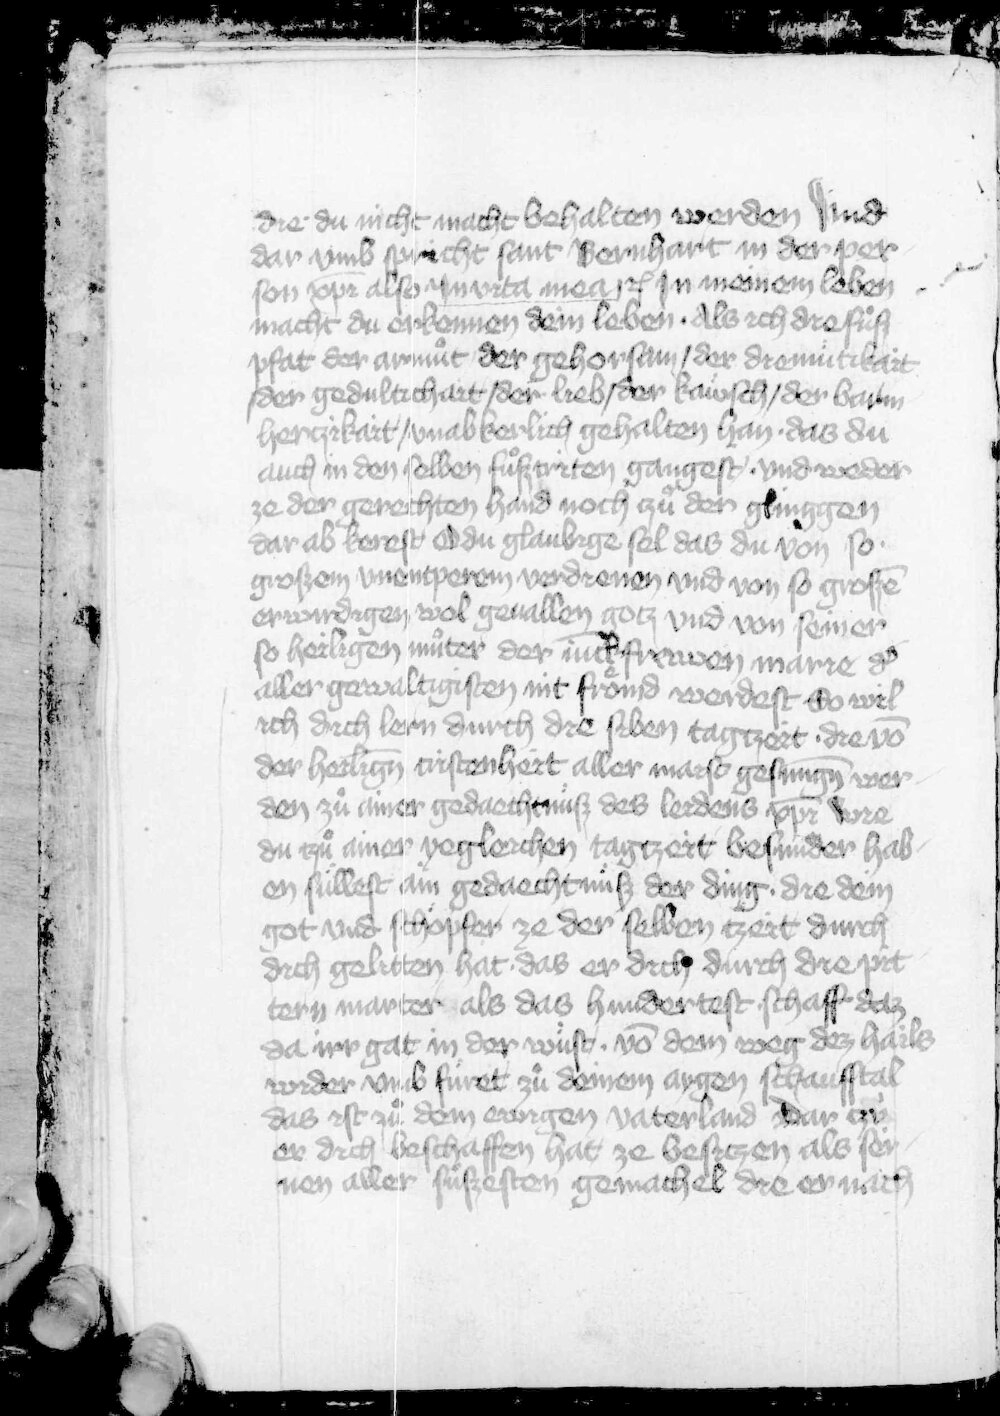 die du nicht macht behalten werden Vnd
dar vmb spricht sant Bernhart in der per
son xp̄i also In vita mea ꝛc̄ In meinem leben
macht du erkennen dein leben · Als ich die fuͦß
pfat der armuͦt der gehorsam / der diemuͤtikait
/ der gedultichait / der lieb / der kawsch / der barm
herczikait / vnabkerlich gehalten han · das du
auch in den selben fuͦßtriten gangest · vnd weder
ze der gerechten hand noch czuͦ der glinggen
dar ab kerest O du glaubige sel das du von so
großem vnentperem verdienen vnd von so großē
erwirdigen wol geuallen gotz vnd von seiner
so heiligen muͦter der iūckfrawen marie dˀ
aller gewaltigisten nit froͤmd werdest So wil
ich dich lern durch die siben tagtzeit · die vō
der heilign̄ cristenheit aller maist gesungn̄ wer
den zuͦ ainer gedaechtnuͤß des leidens xp̄i Wie
du czuͦ ainer yegleichen tagtzeit besunder hab
en suͤllest ain gedaechtnuͤß der ding · die dein
got vnd schoͤpfer ze der selben tzeit durch
dich gelitten hat · das er dich durch die pit
tern marter als das hundertest schaff daz
da irr gat in der wuͤst · vō dem weg dez hails
wider vmb fuͤret zuͦ deinem aygen schaufstal
das ist zuͦ dem ewigen vaterland Dar czuͦ
er dich beschaffen hat ze besitzen als sei
nen aller suͤßesten gemachel die er nach